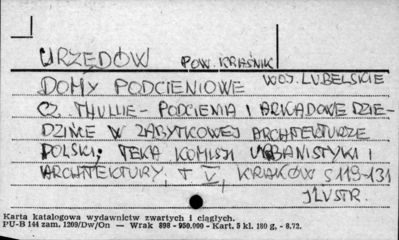 URZĘDÓW POW. KRAŚNIK
DOMY PODCIENIOWE WOJ. LUBELSKIE
CZ. THULLIE - PODCIENIA I ARKADOWE DZIE-
DZIŃCE W ZABYTKOWEJ ARCHITEKTURZE
POLSKI; TEKA KOMISJI URBANISTYKI I
ARCHITEKTURY, T V, KRAKÓW S 119-131
ILUSTR.
Karta katalogowa wydawnictw zwartych i ciągłych.
PU-B 144 zam. 1209/Dw/On — Wrak 898 - 950.000 - Kart. 5 kl. 180 g. - 8.72.